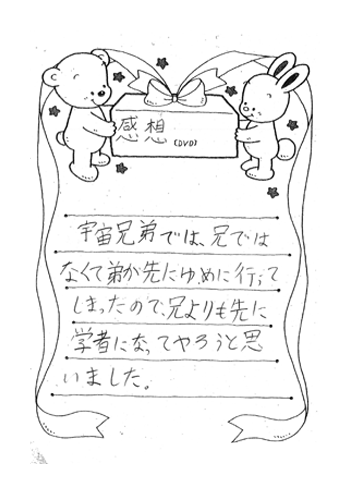 感想
(DVD)
宇宙兄弟では、兄では
なくて弟が先にゆめに行って
しまったので、兄よりも先に
学者になってやろうと思
いました。